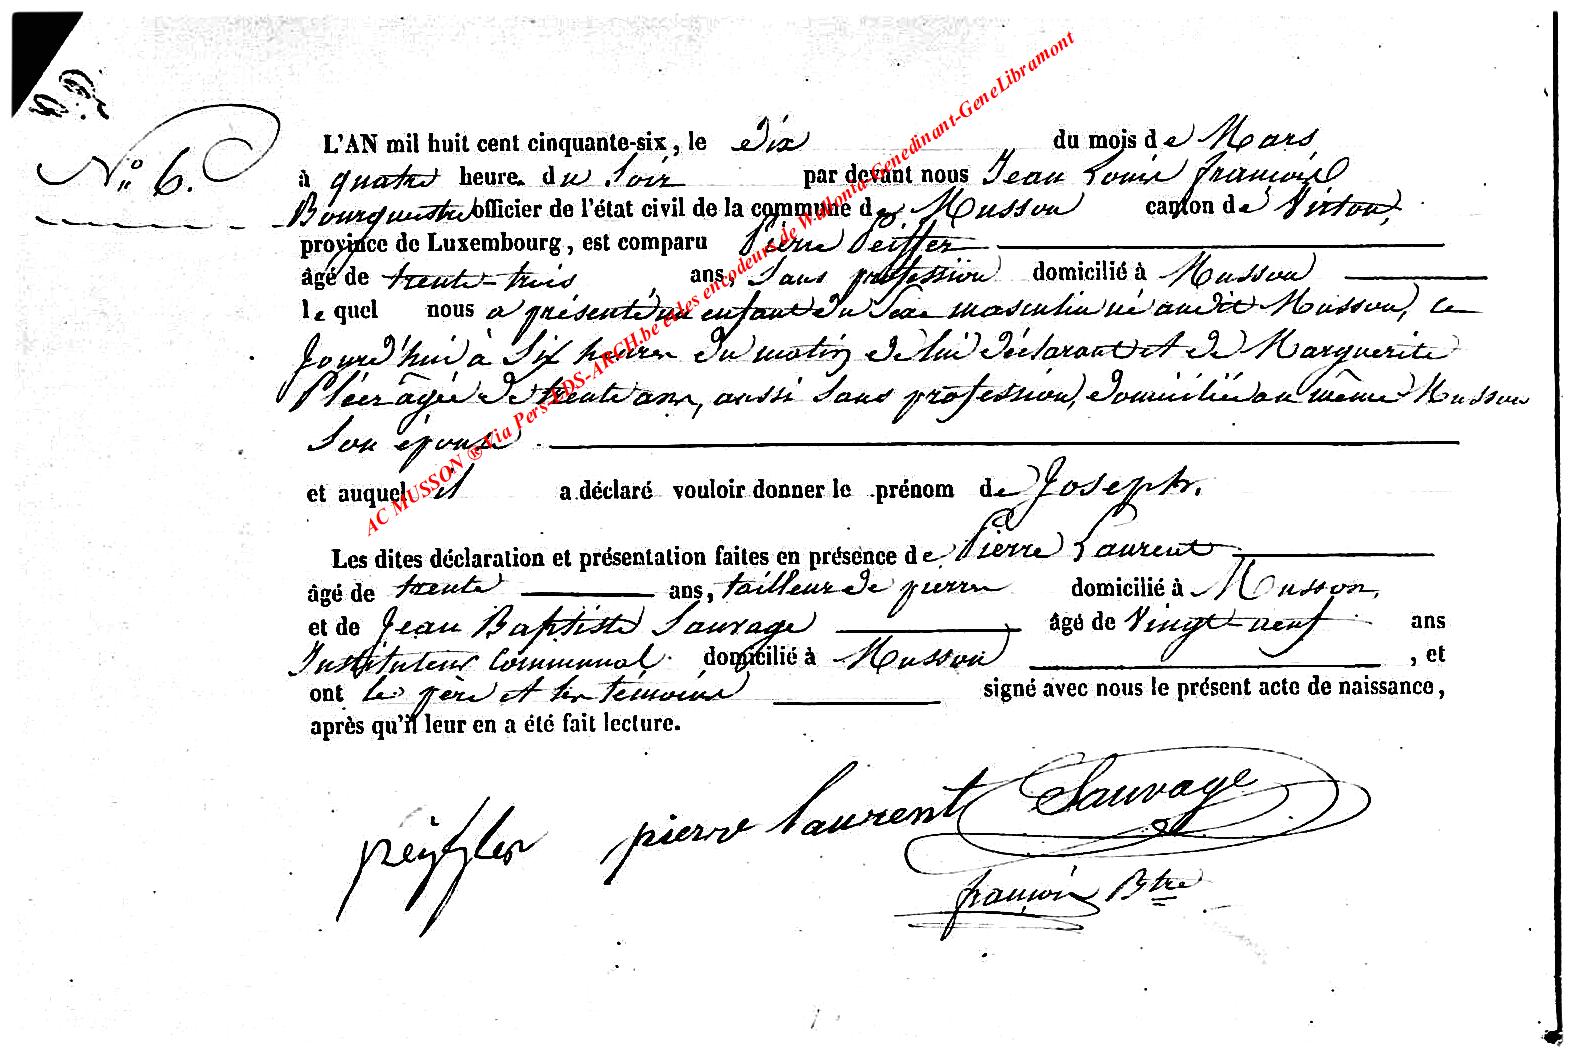 N° 6.
L'AN mil huit cent cinquante-six, le dix du mois de Mars
à quatre heure. du Soir par devant nous Jean Louis françois
Bourguestre officier de l'état civil de la commune de Musson canton de Virton,
province de Luxembourg, est comparu Pierre Peiffer
âgé de trente-trois ans, Sans profession domicilié à Musson
le quel nous a présenté un enfant du Sexe masculin né audit Musson, ce
Jourd'hui à Six heures du matin de lui déclarant et de Marguerite
âgée de trente ans, aussi Sans profession, domiciliée au même Musson
Son épouse
et auquel il a déclaré vouloir donner le prénom de Joseph.
Les dites déclaration et présentation faites en présence de Pierre Laurent
âgé de trente ans, tailleur de pierres domicilié à Musson,
et de Jean Baptiste Sauvage âgé de Vingt-neuf ans
Instituteur Communal domicilié à Musson, et
ont le père et les témoins signé avec nous le présent acte de naissance,
après qu'il leur en a été fait lecture.
peiffer pierre laurent Sauvage
françois Btre
AC MUSSON ® Via Pers EDS-ARCH.be et les encodeurs de Wallonia-Genedinant-GeneLibramont